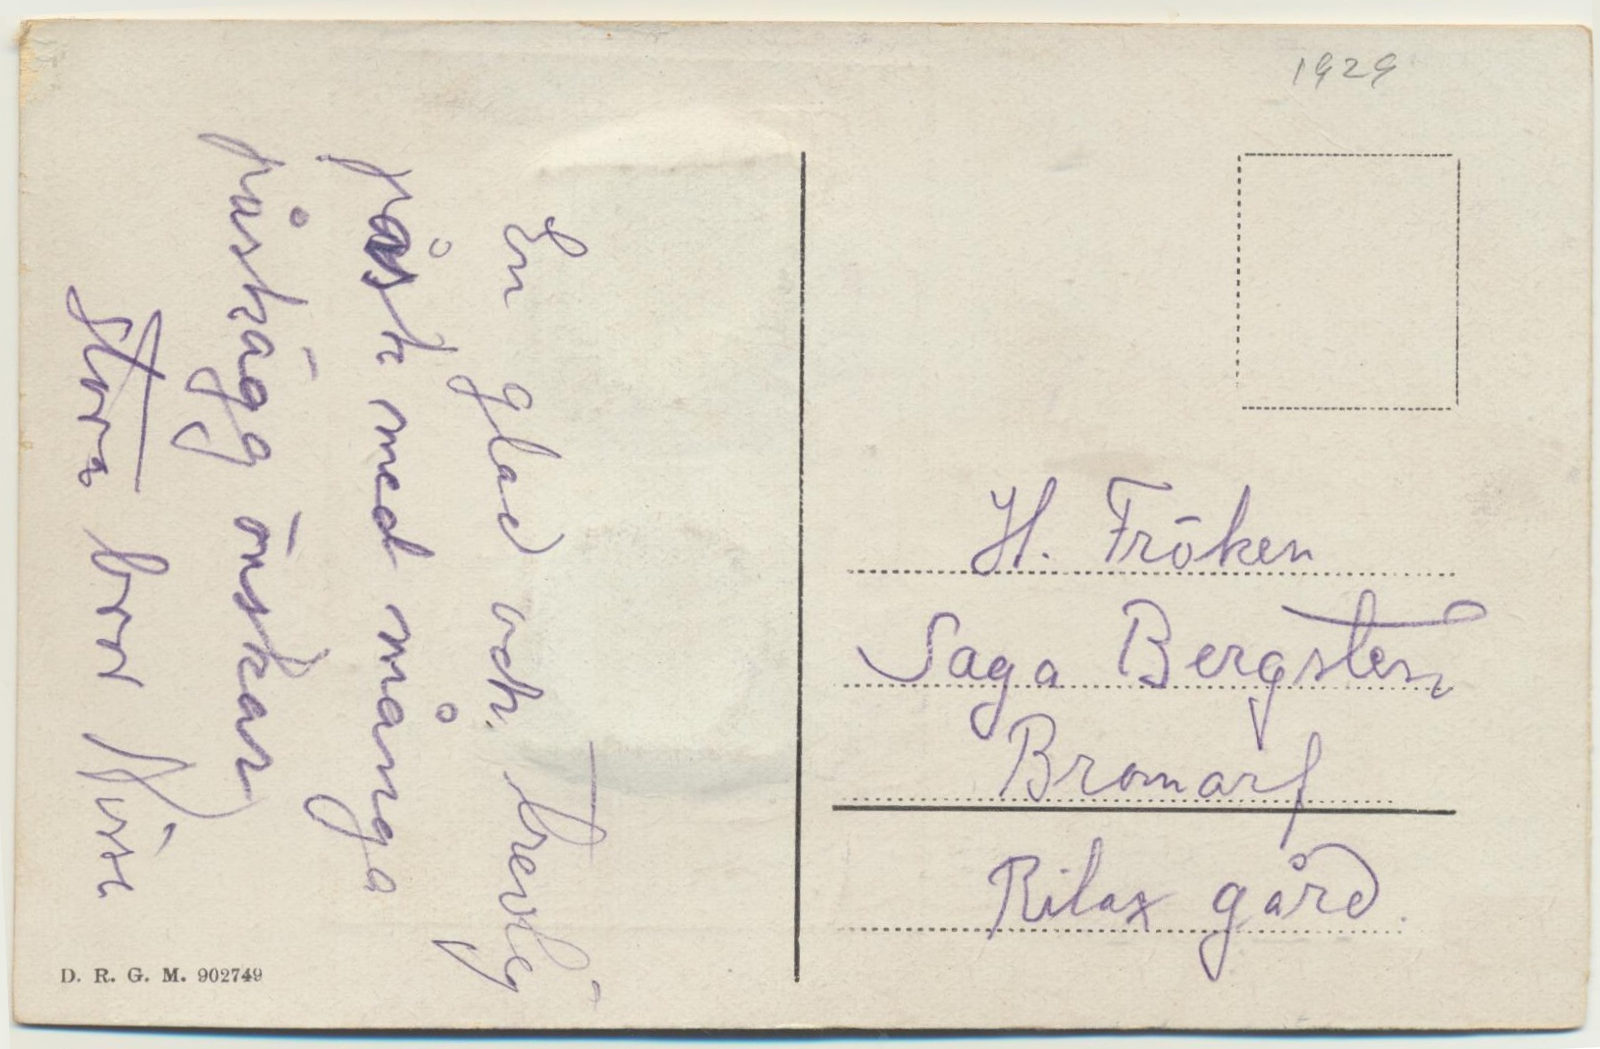 1929
En glad och trevlig
påsk med många
påskägg önskar
Stora bror Nisse
H. Fröken
Saga Bergsten
Bromarf
Rilax gård.
D. R. G. M. 902749